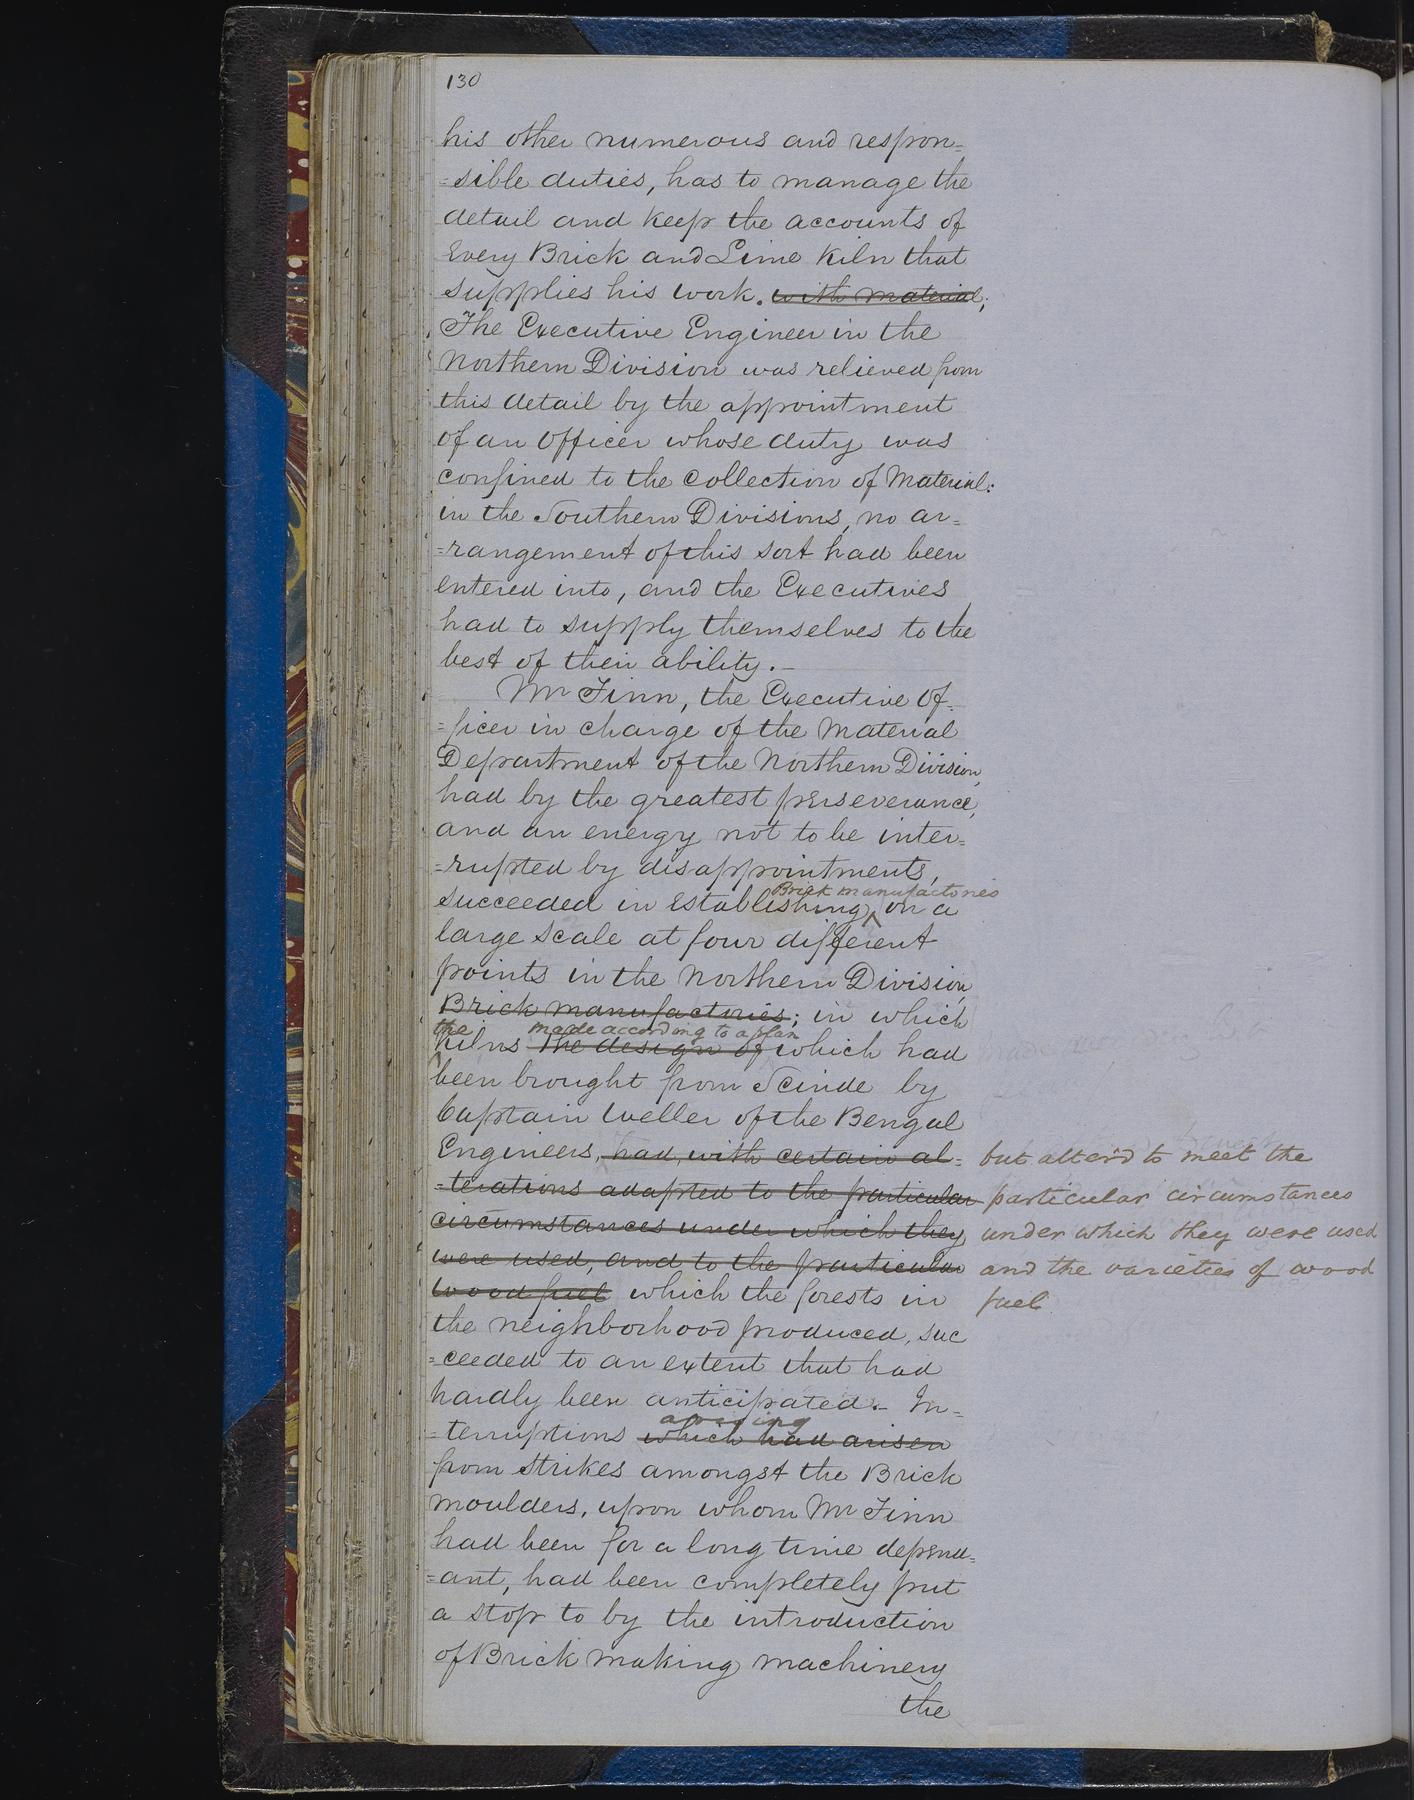 130
his other numerous and respon=
=sible duties, has to manage the
detail and keep the accounts of
Every Brick and Lime Kiln that
supplies his work. with material;
The Executive Engineer in the
Northern Division was relieved from
this detail by the appointment
of an Officer whose duty was
confined to the collection of Material:
in the Southern Divisions, no ar=
=rangement of this sort had been
entered into, and the Executives
had to supply themselves to the
best of their ability.—
Mr Finn, the Executive Of=
=ficer in charge of the Material
Department of the Northern Division,
had by the greatest perseverance,
and an energy not to be inter=
=rupted by disappointments,
Brick manufactories
succeeded in establishing ^ on a
large scale at four different
points in the Northern Division,
Brick manufactories; in which
the made according to a plan
kilns the design of which had
been brought from Scinde by
Captain Weller of the Bengal
Engineers, had, with certain al=
=terations adapted to the particular
circumstances under which they
were used, and to the particular
wood fuel which the forests in
but alter'd to meet the
particular circumstances
under which they were used
and the varieties of wood
fuel
the neighborhood produced, suc
=ceeded to an extent that had
hardly been anticipated.— In=
arising
=terruptions which had arisen
from strikes amongst the Brick
moulders, upon whom Mr Finn
had been for a long time depend=
=ant, had been completely put
a stop to by the introduction
of Brick making machinery
the